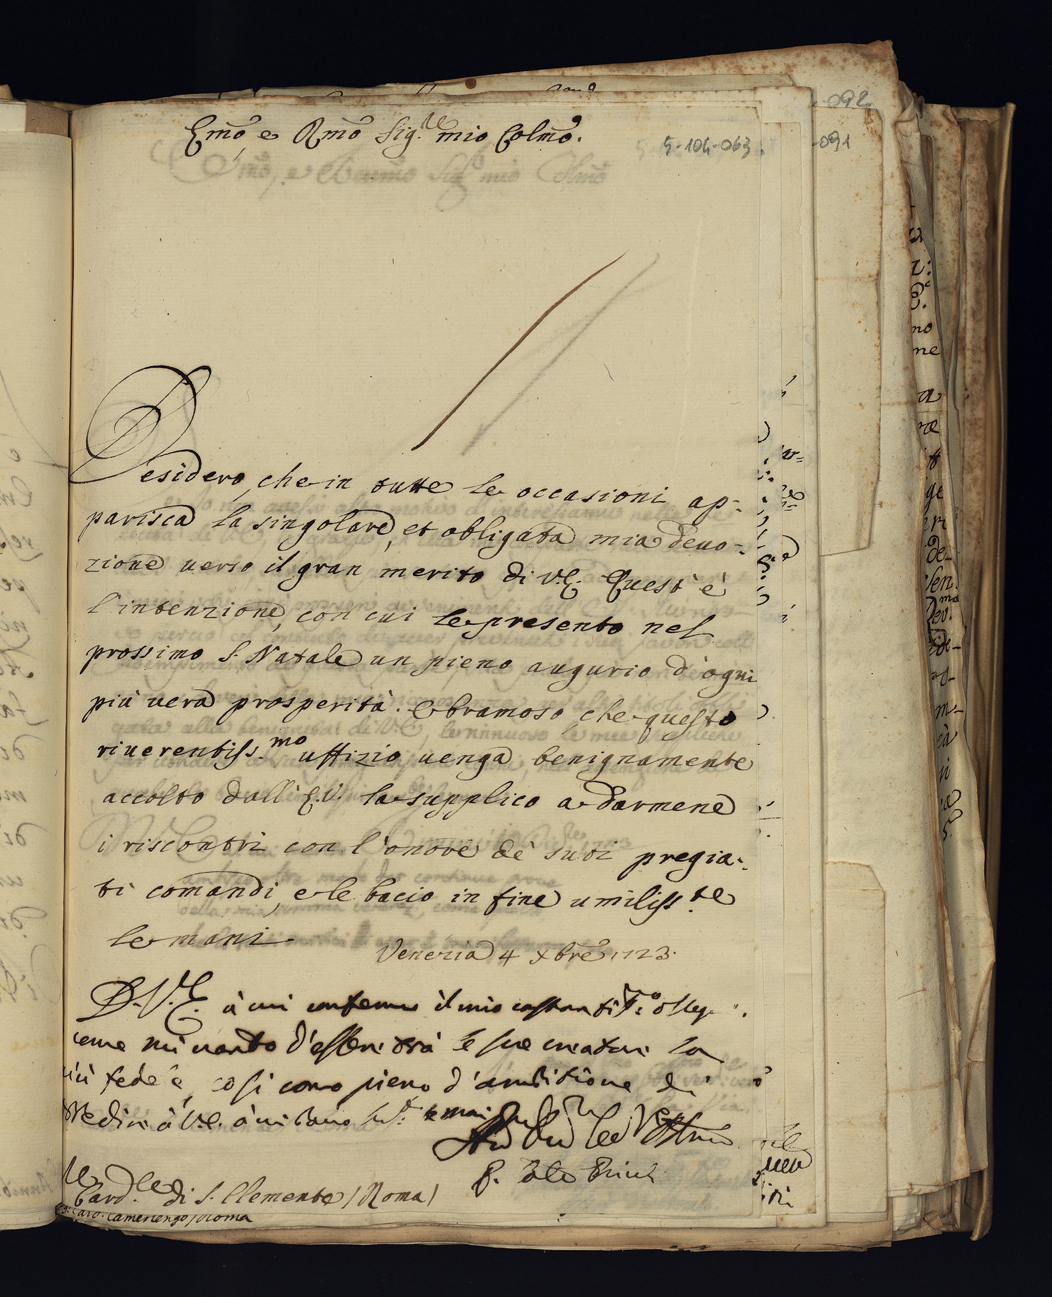 Emo e Rmo Sig.re mio Colmo.
5-104-063
-092
-091
Desidero, che in tutte le occasioni ap-
parisca la singolare, et obligata mia devo-
zione verso il gran merito di V.E. Quest'è
l'intenzione, con cui le presento nel
prossimo S. Natale un pieno augurio d'ogni
più vera prosperità. E bramoso che questo
riverentiss.mo uffizio venga benignamente
accolto dall'E.V. la supplico a darmene
i riscontri con l'onore de suoi pregia-
ti comandi, e le bacio in fine umiliss.te
le mani.
Venezia 4 Xbre 1723.
D. V. E. à cui confermo il mio
come mi vanto d'esser trà le sue creature la
più fedele, così come pieno d'ambitione di
à V.E. à cui bacio le mani
Card.le di S. Clemente / Roma /
Card. Camerlengo / Roma